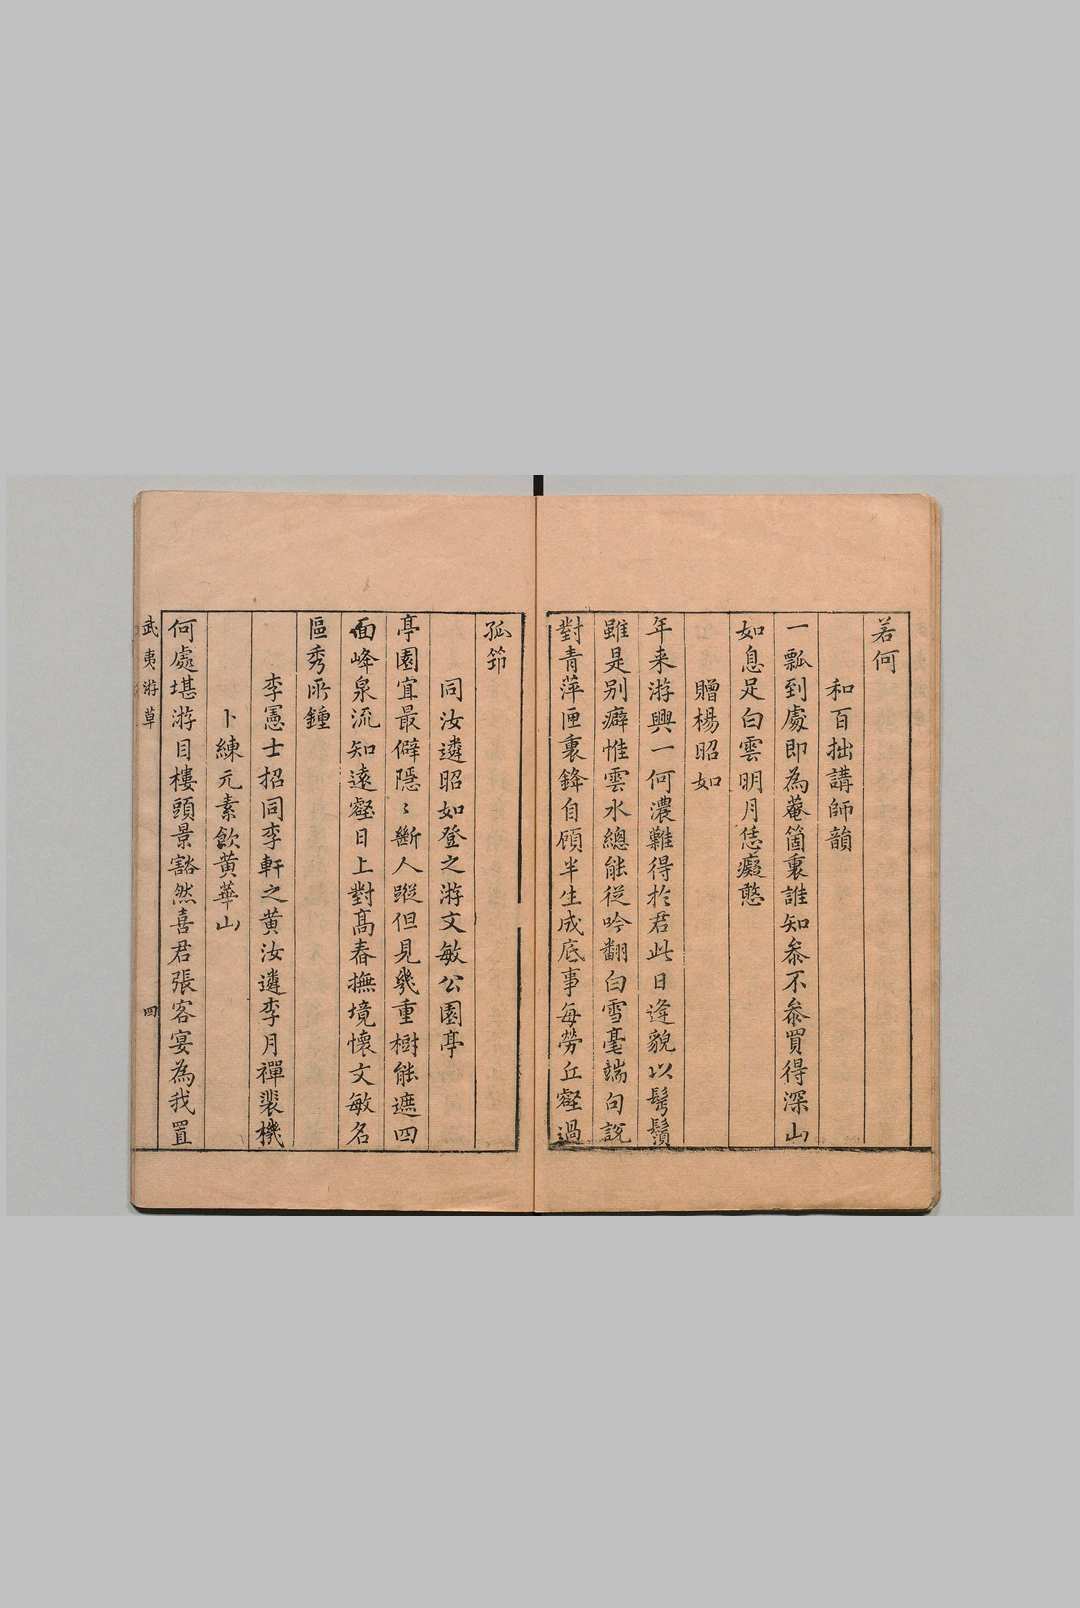 若何
和百拙講師韻
一瓢到處即為菴箇裏誰知叅不叅買得深山
如息足白雲明月恁癡憨
贈楊昭如
年来游興一何濃難得於君此日逢貌以髩鬚
雖是别癖惟雲水總能從吟翻白雪毫端句説
對青萍匣裏鋒自顧半生成底事每勞丘壑過
孤笻
同汝遴昭如登之游文敏公園亭
亭園宜最僻隱〻斷人蹤但見幾重樹能遮四
面峰泉流知遠壑日上對髙舂撫境懐文敏名
區秀所鍾
李憲士招同李軒之黄汝遴李月禪裴機
卜練元素飲黄華山
何處堪游目樓頭景豁然喜君張客宴為我置
武夷游草 四